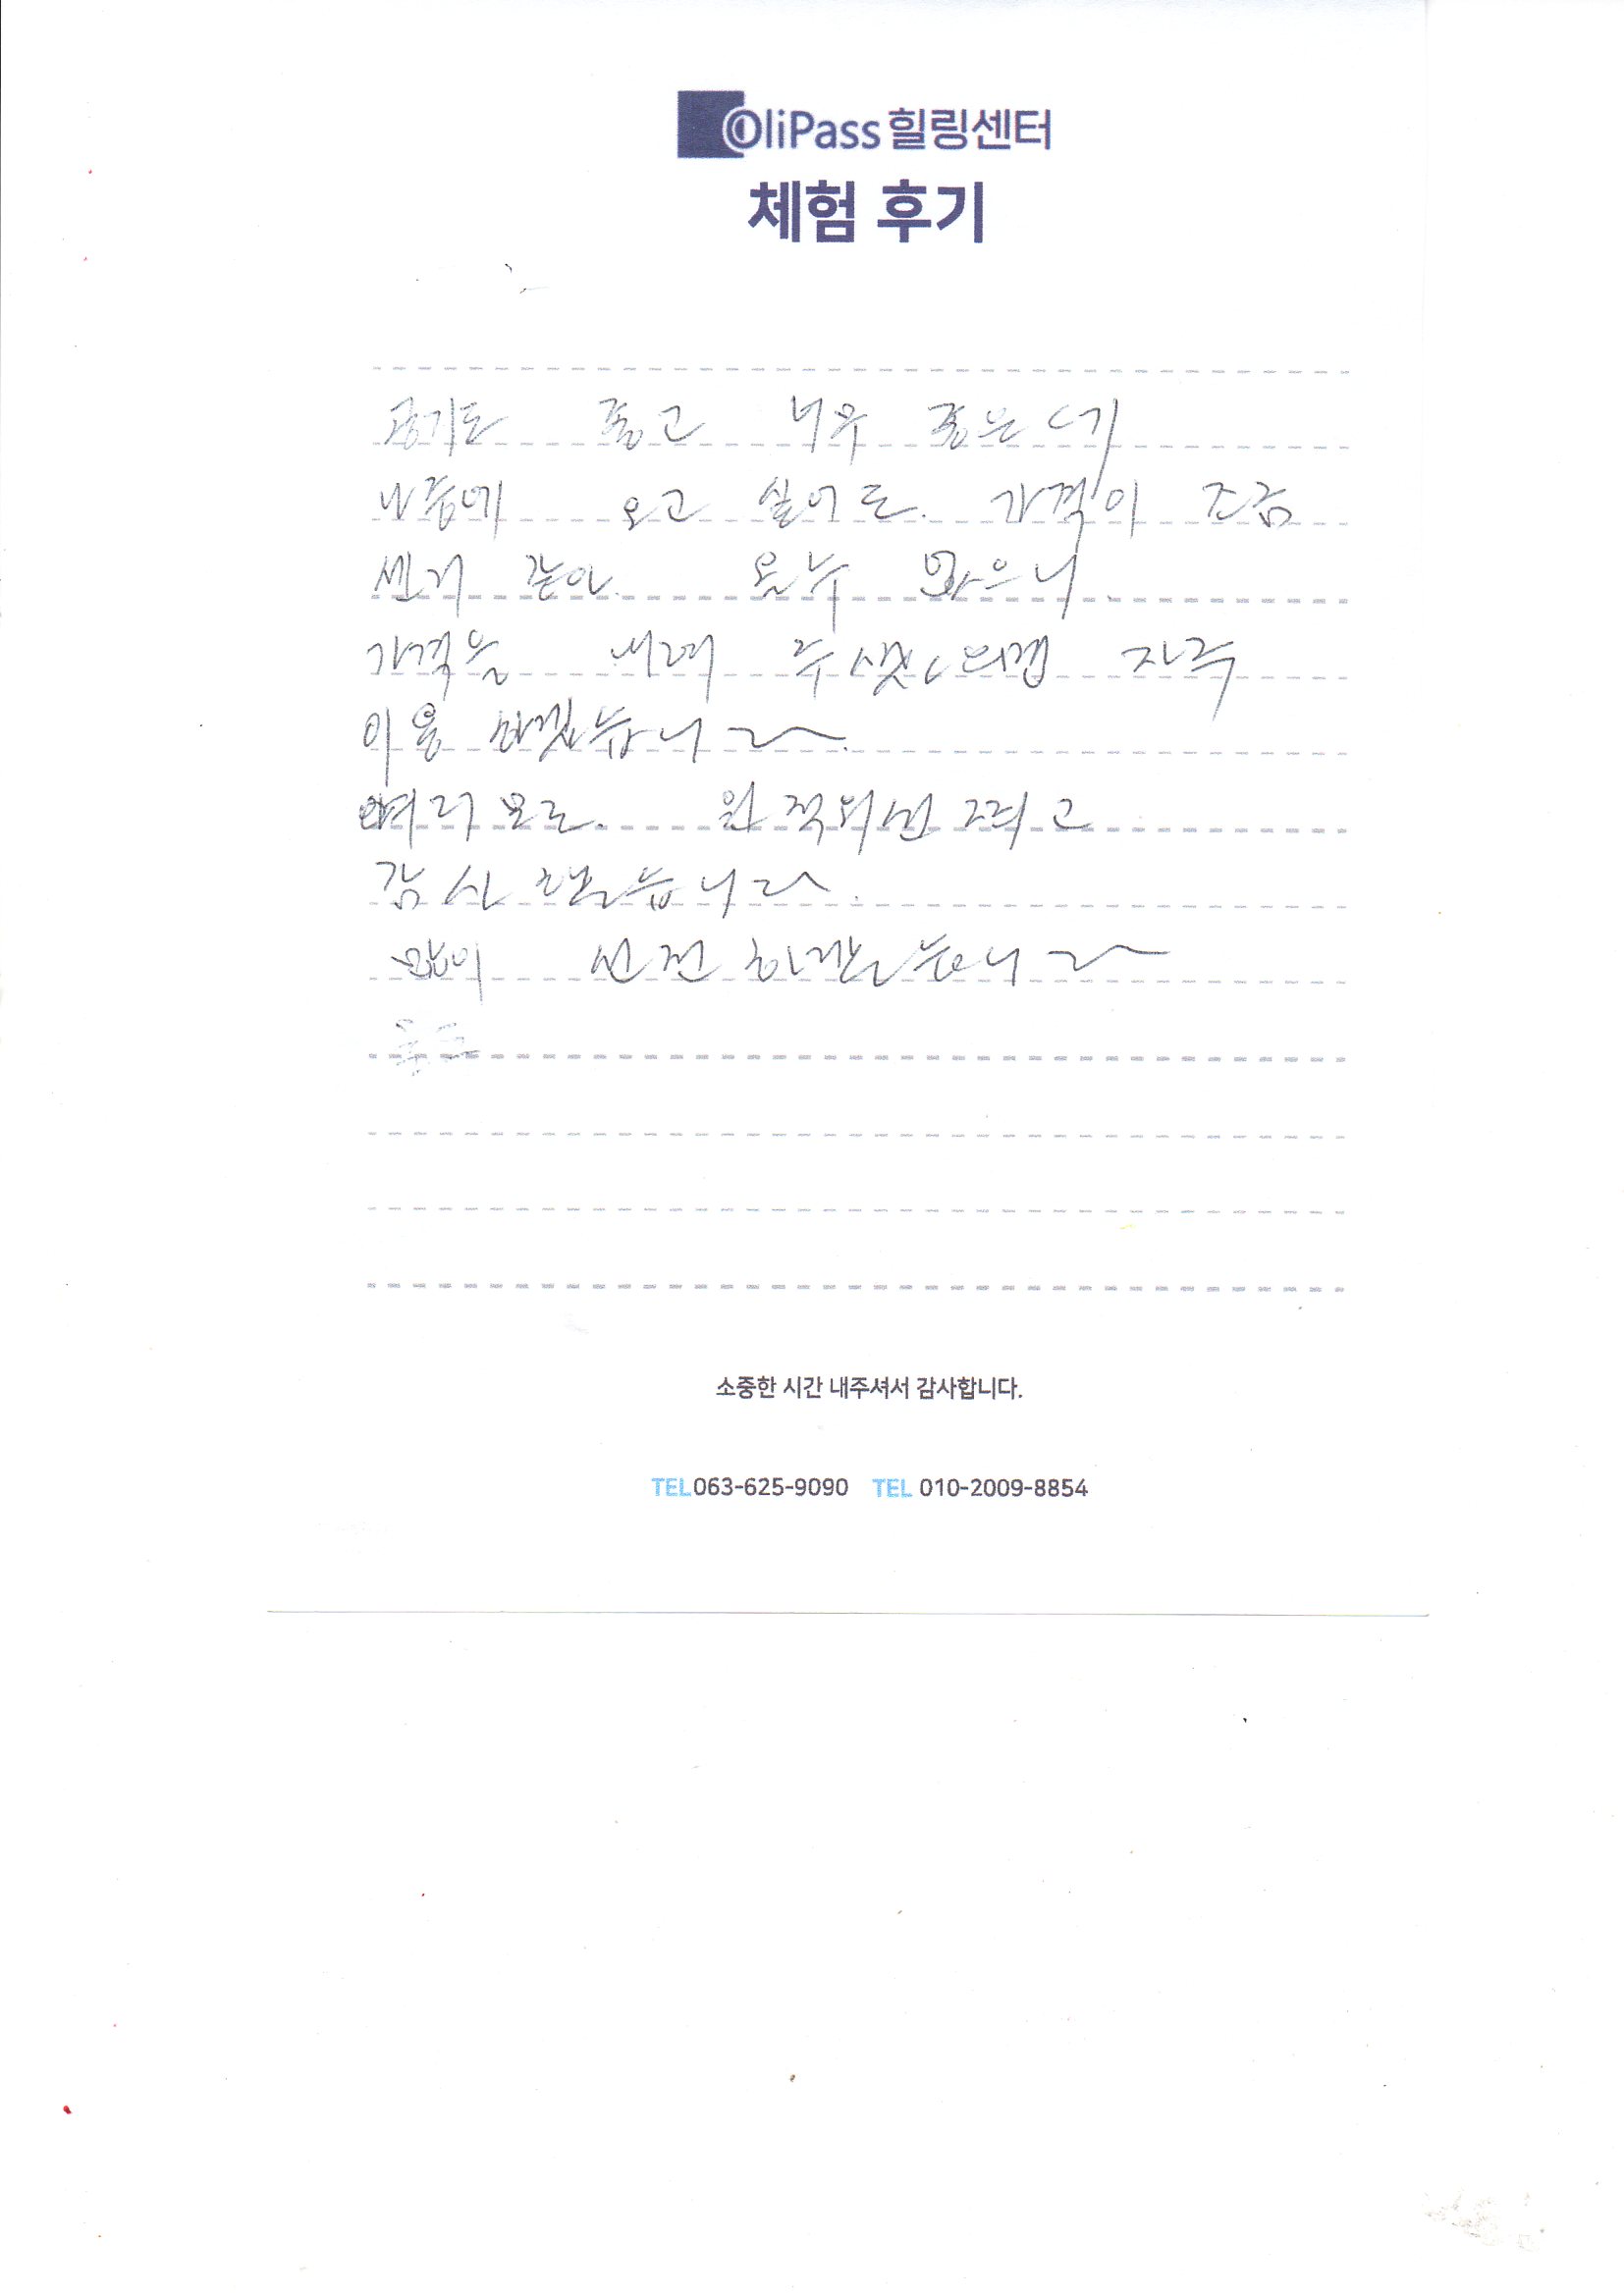 OliPass 힐링센터
체험 후기
공기도 좋고 너무 좋은
나중에 오고 싶어도. 가격이 조금
센거 같아. 올수
가격을 내려 주 자주
이용 하겠습니다.
여러모로. 그리고
감사 했습니다.
많이 선전 하겠습니다
소중한 시간 내주셔서 감사합니다.
TEL 063-625-9090 TEL 010-2009-8854